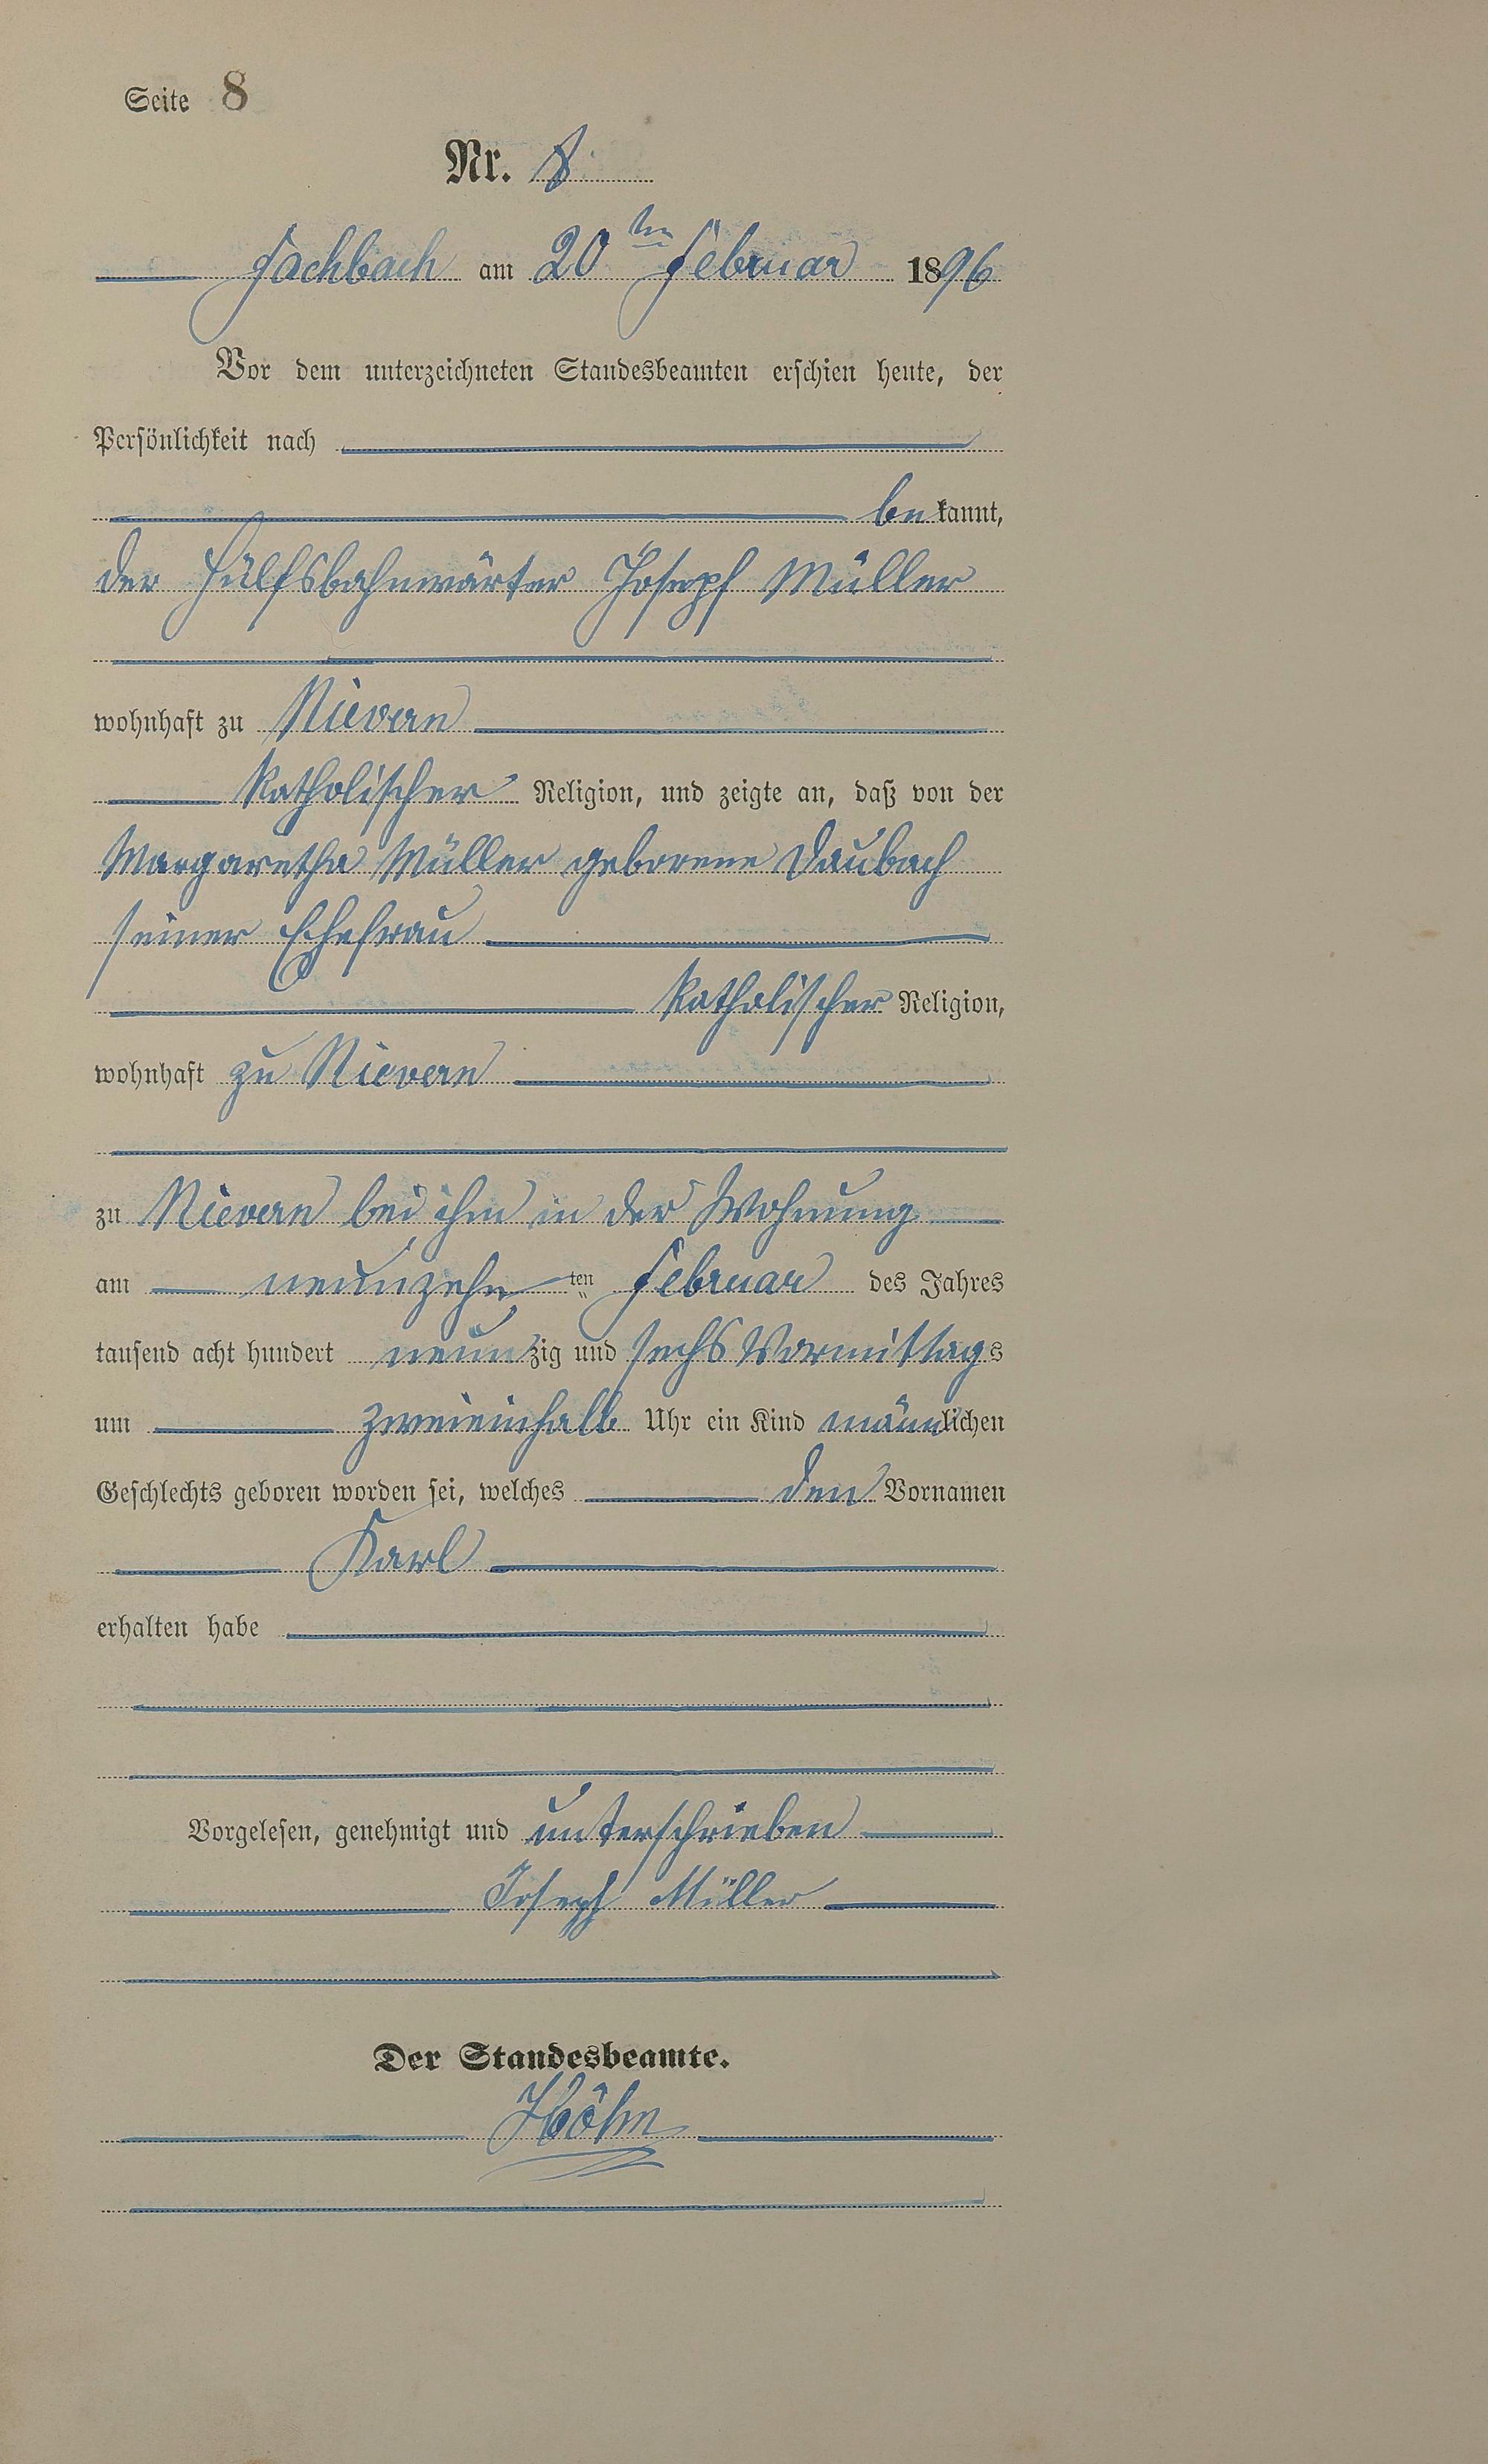 Seite 8
Nr. 8.
Fachbach am 20ten Februar 1896
Vor dem unterzeichneten Standesbeamten erschien heute, der
Persönlichkeit nach
bekannt,
der Hülfsbahnwärter Joseph Müller
wohnhaft zu Nievern
katholischer Religion, und zeigte an, daß von der
Margaretha Müller geborene Daubach
seiner Ehefrau
katholischer Religion,
wohnhaft zu Nievern
zu Nievern bei ihm in der Wohnung
am neunzehnten Februar des Jahres
tausend acht hundert neunzig und sechs Vormittags
um zweieinhalb Uhr ein Kind männlichen
Geschlechts geboren worden sei, welches den Vornamen
Karl
erhalten habe
Vorgelesen, genehmigt und unterschrieben
Joseph Müller
Der Standesbeamte.
Höhn